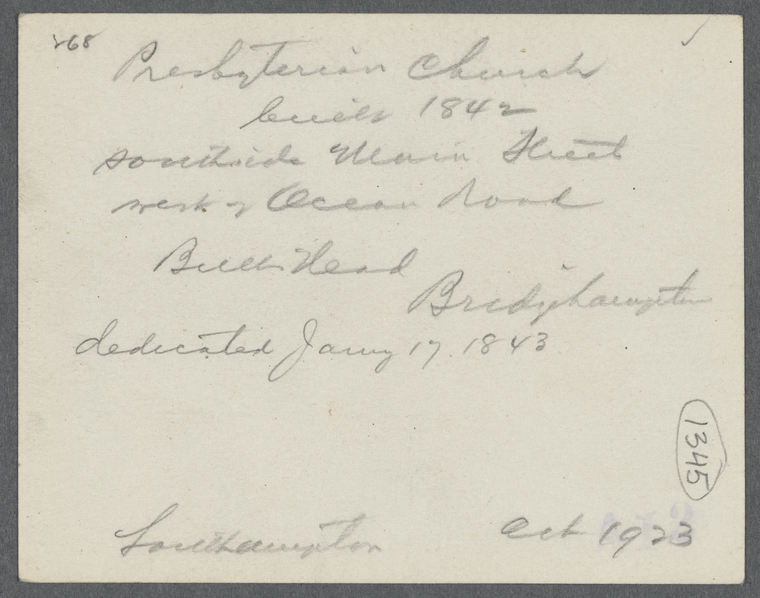 268
Presbyterian Church
built 1842
south side Main Street
west of Ocean Road
Bull's Head
Bridgehampton
dedicated Jany 17 1843
1345
Southampton Oct 1923